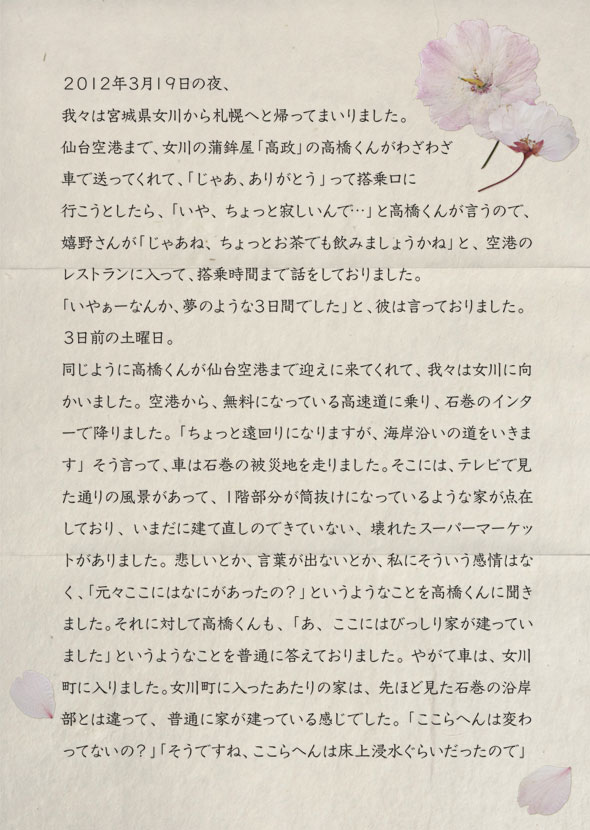 2012年3月19日の夜、
我々は宮城県女川から札幌へと帰ってまいりました。
仙台空港まで、女川の蒲鉾屋「高政」の高橋くんがわざわざ
車で送ってくれて、「じゃあ、ありがとう」って搭乗口に
行こうとしたら、「いや、ちょっと寂しいんで…」と高橋くんが言うので、
嬉野さんが「じゃあね、ちょっとお茶でも飲みましょうかね」と、空港の
レストランに入って、搭乗時間まで話をしておりました。
「いやぁーなんか、夢のような3日間でした」と、彼は言っておりました。
3日前の土曜日。
同じように高橋くんが仙台空港まで迎えに来てくれて、我々は女川に向
かいました。空港から、無料になっている高速道に乗り、石巻のインタ
ーで降りました。「ちょっと遠回りになりますが、海岸沿いの道をいきま
す」そう言って、車は石巻の被災地を走りました。そこには、テレビで見
た通りの風景があって、1階部分が筒抜けになっているような家が点在
しており、いまだに建て直しのできていない、壊れたスーパーマーケッ
トがありました。悲しいとか、言葉が出ないとか、私にそういう感情はな
く、「元々ここにはなにがあったの？」というようなことを高橋くんに聞き
ました。それに対して高橋くんも、「あ、ここにはびっしり家が建ってい
ました」というようなことを普通に答えておりました。やがて車は、女川
町に入りました。女川町に入ったあたりの家は、先ほど見た石巻の沿岸
部とは違って、普通に家が建っている感じでした。「ここらへんは変わ
ってないの？」「そうですね、ここらへんは床上浸水ぐらいだったので」